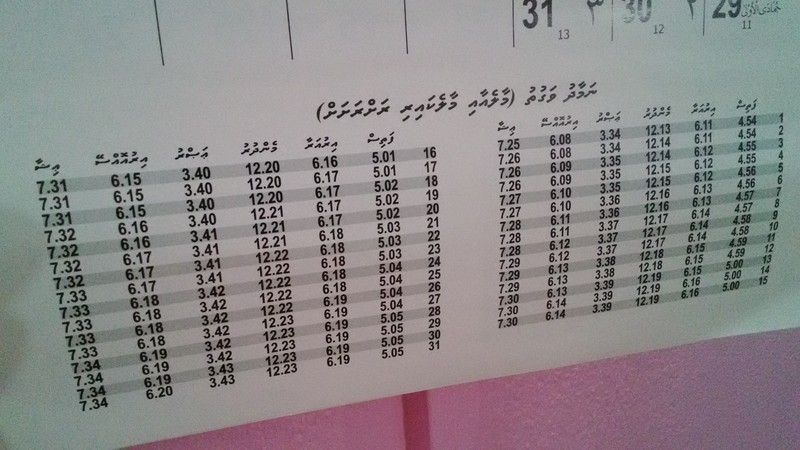 29 30 31
11 12 13
ނަމާދު ވަގުތު (މާލެއާއި މާލެކައިރި ރަށްރަށަށް)
ފަތިސް އިރުއަރާ މެންދުރު ޢަޞްރު އިރުއޮއްސޭ އިޝާ
1 4.54 6.11 12.13 3.34 6.08 7.25
2 4.54 6.11 12.14 3.34 6.08 7.26
3 4.55 6.12 12.14 3.35 6.09 7.26
4 4.55 6.12 12.15 3.35 6.09 7.26
5 4.56 6.12 12.15 3.35 6.10 7.27
6 4.56 6.13 12.16 3.36 6.10 7.27
7 4.57 6.13 12.16 3.36 6.11 7.28
8 4.57 6.14 12.17 3.37 6.11 7.28
9 4.58 6.14 12.17 3.37 6.12 7.28
10 4.58 6.14 12.17 3.37 6.12 7.29
11 4.59 6.15 12.18 3.38 6.13 7.29
12 4.59 6.15 12.18 3.38 6.13 7.29
13 5.00 6.15 12.19 3.39 6.13 7.30
14 5.00 6.16 12.19 3.39 6.14 7.30
15 5.00 6.16 12.19 3.39 6.14 7.30
ފަތިސް އިރުއަރާ މެންދުރު ޢަޞްރު އިރުއޮއްސޭ އިޝާ
16 5.01 6.16 12.20 3.40 6.15 7.31
17 5.01 6.17 12.20 3.40 6.15 7.31
18 5.02 6.17 12.20 3.40 6.15 7.31
19 5.02 6.17 12.21 3.40 6.16 7.32
20 5.02 6.17 12.21 3.41 6.16 7.32
21 5.03 6.18 12.21 3.41 6.17 7.32
22 5.03 6.18 12.22 3.41 6.17 7.32
23 5.03 6.18 12.22 3.41 6.17 7.33
24 5.04 6.18 12.22 3.42 6.18 7.33
25 5.04 6.18 12.22 3.42 6.18 7.33
26 5.04 6.19 12.22 3.42 6.18 7.33
27 5.04 6.19 12.23 3.42 6.18 7.33
28 5.05 6.19 12.23 3.42 6.19 7.34
29 5.05 6.19 12.23 3.42 6.19 7.34
30 5.05 6.19 12.23 3.43 6.19 7.34
31 5.05 6.19 12.23 3.43 6.20 7.34